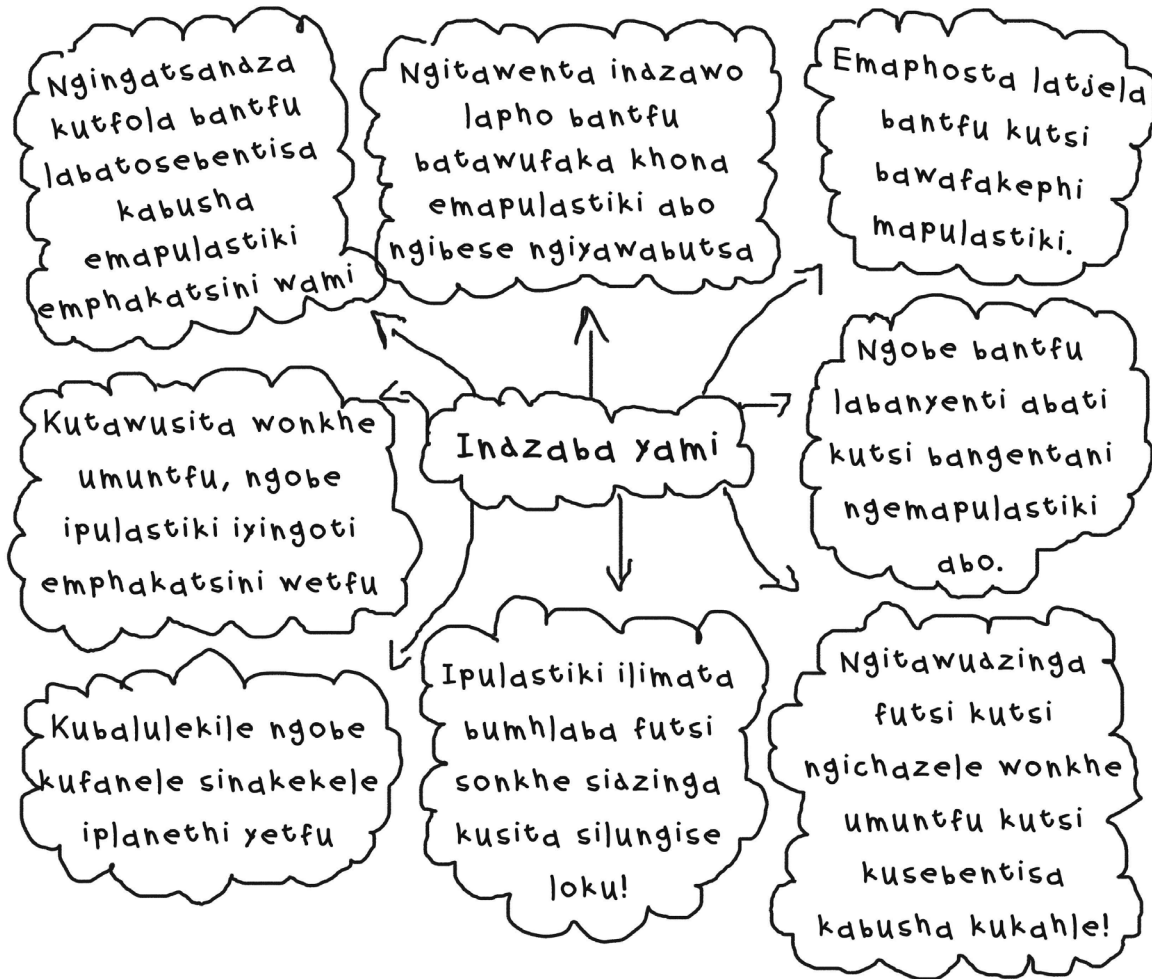 Ngingatsandza
kutfola bantfu
labatosebentisa
kabusha
emapulastiki
emphakatsini wami
Ngitawenta indzawo
lapho bantfu
batawufaka khona
emapulastiki abo
ngibese ngiyawabutsa
Emaphosta latjela
bantfu kutsi
bawafakephi
mapulastiki.
Kutawusita wonkhe
umuntfu, ngobe
ipulastiki iyingoti
emphakatsini wetfu
Indzaba yami
Ngobe bantfu
labanyenti abati
kutsi bangentani
ngemapulastiki
abo.
Kubalulekile ngobe
kufanele sinakekele
iplanethi yetfu
Ipulastiki ilimata
bumhlaba futsi
sonkhe sidzinga
kusita silungise
loku!
Ngitawudzinga
futsi kutsi
ngichazele wonkhe
umuntfu kutsi
kusebentisa
kabusha kukahle!